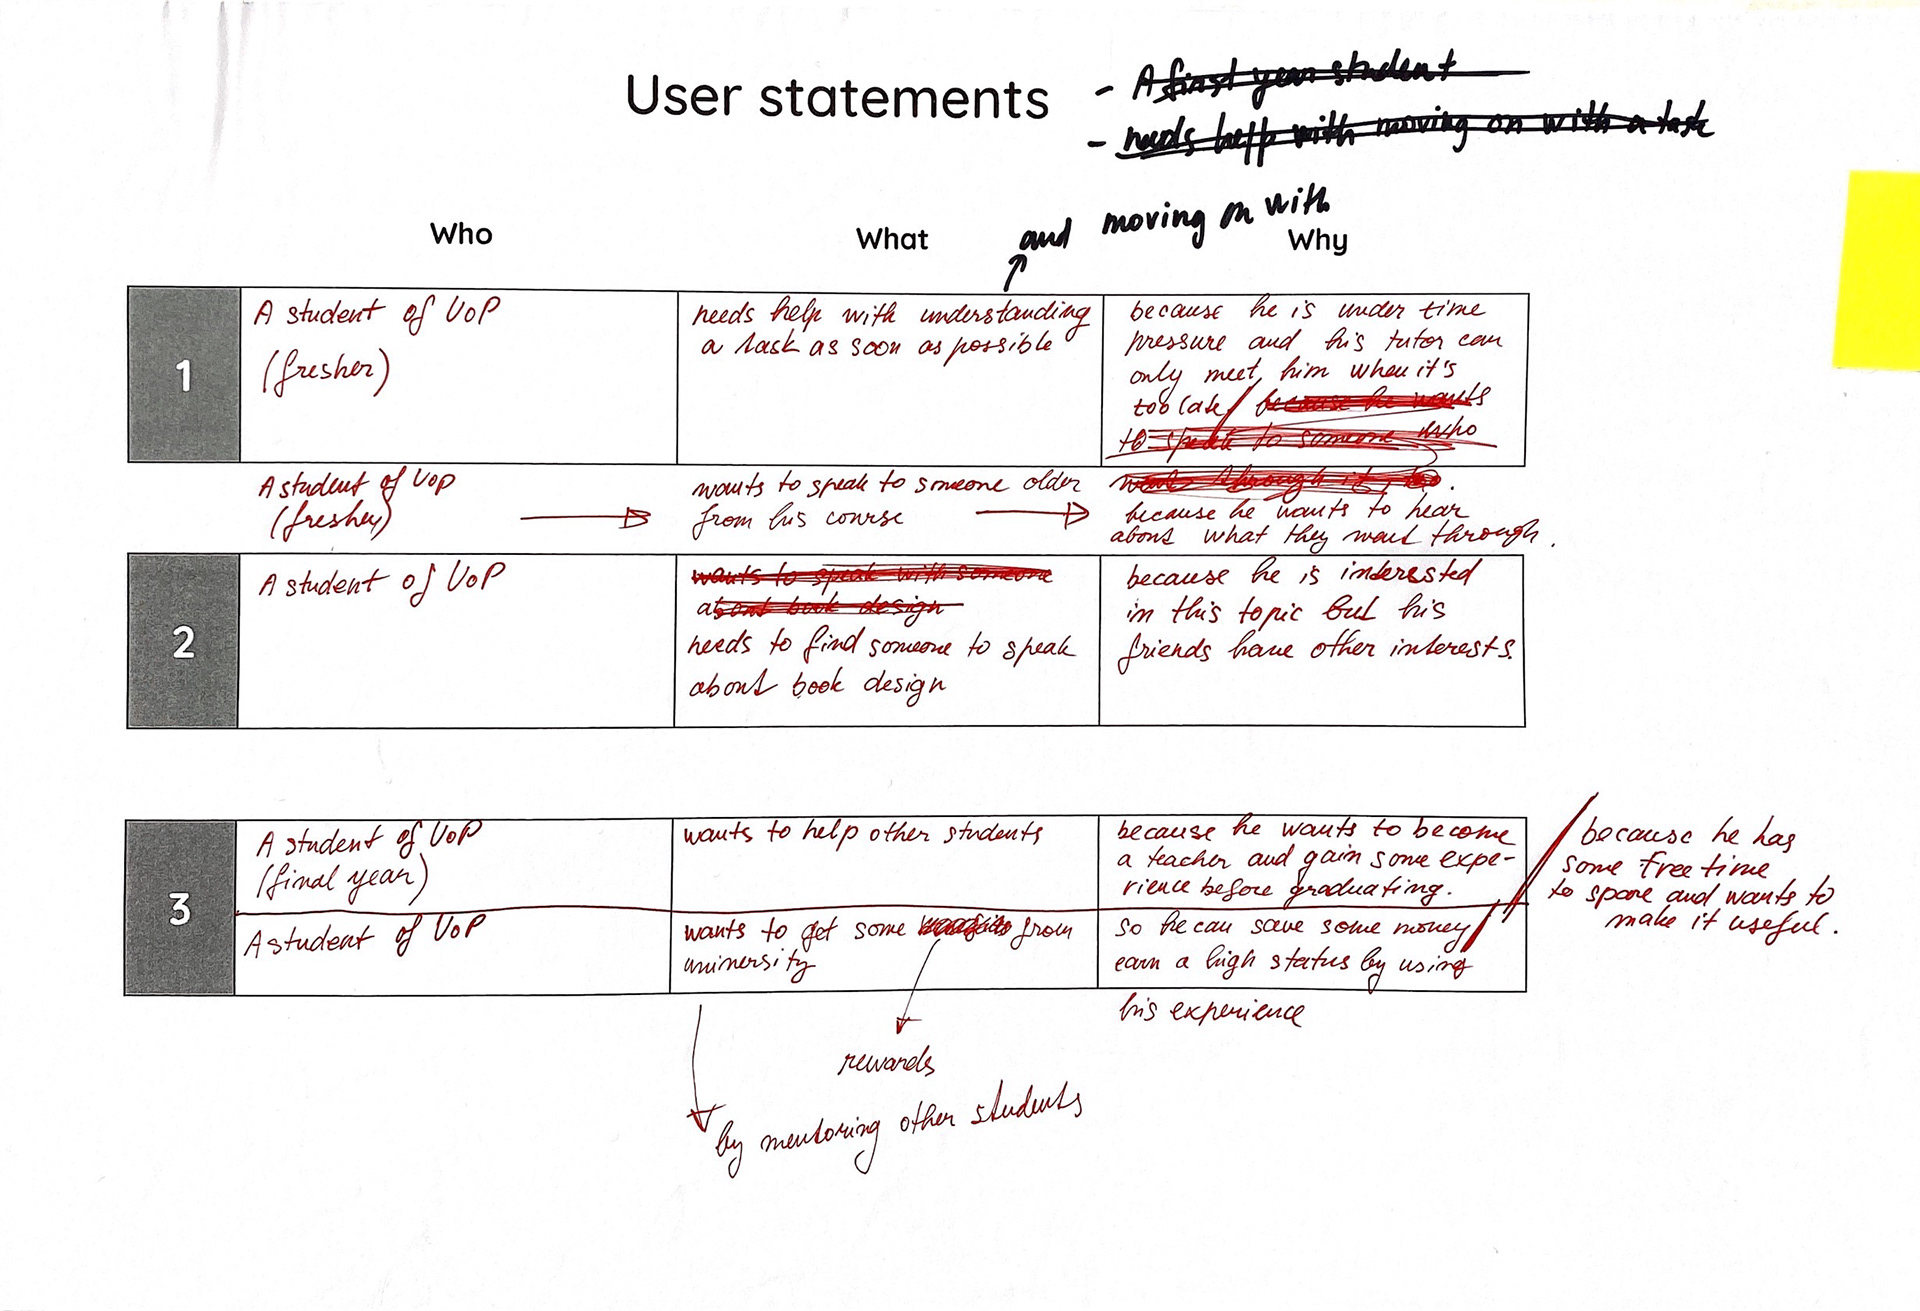 User statements
- A first year student
- needs help with moving on with a task
and moving on with
Who
What
Why
1
A student of UoP
(fresher)
needs help with understanding
a task as soon as possible
because he is under time
pressure and his tutor can
only meet him when it's
too late/ because he wants
to speak to someone who
went through it, too.
A student of UoP
(fresher)
wants to speak to someone older
from his course
because he wants to hear
about what they went through.
2
A student of UoP
wants to speak with someone
about book design
needs to find someone to speak
about book design
because he is interested
in this topic but his
friends have other interests.
3
A student of UoP
(final year)
wants to help other students
because he wants to become
a teacher and gain some expe-
rience before graduating.
/ because he has
some free time
to spare and wants to
make it useful.
A student of UoP
wants to get some from
university
so he can save some money/
earn a high status by using
his experience
rewards
by mentoring other students